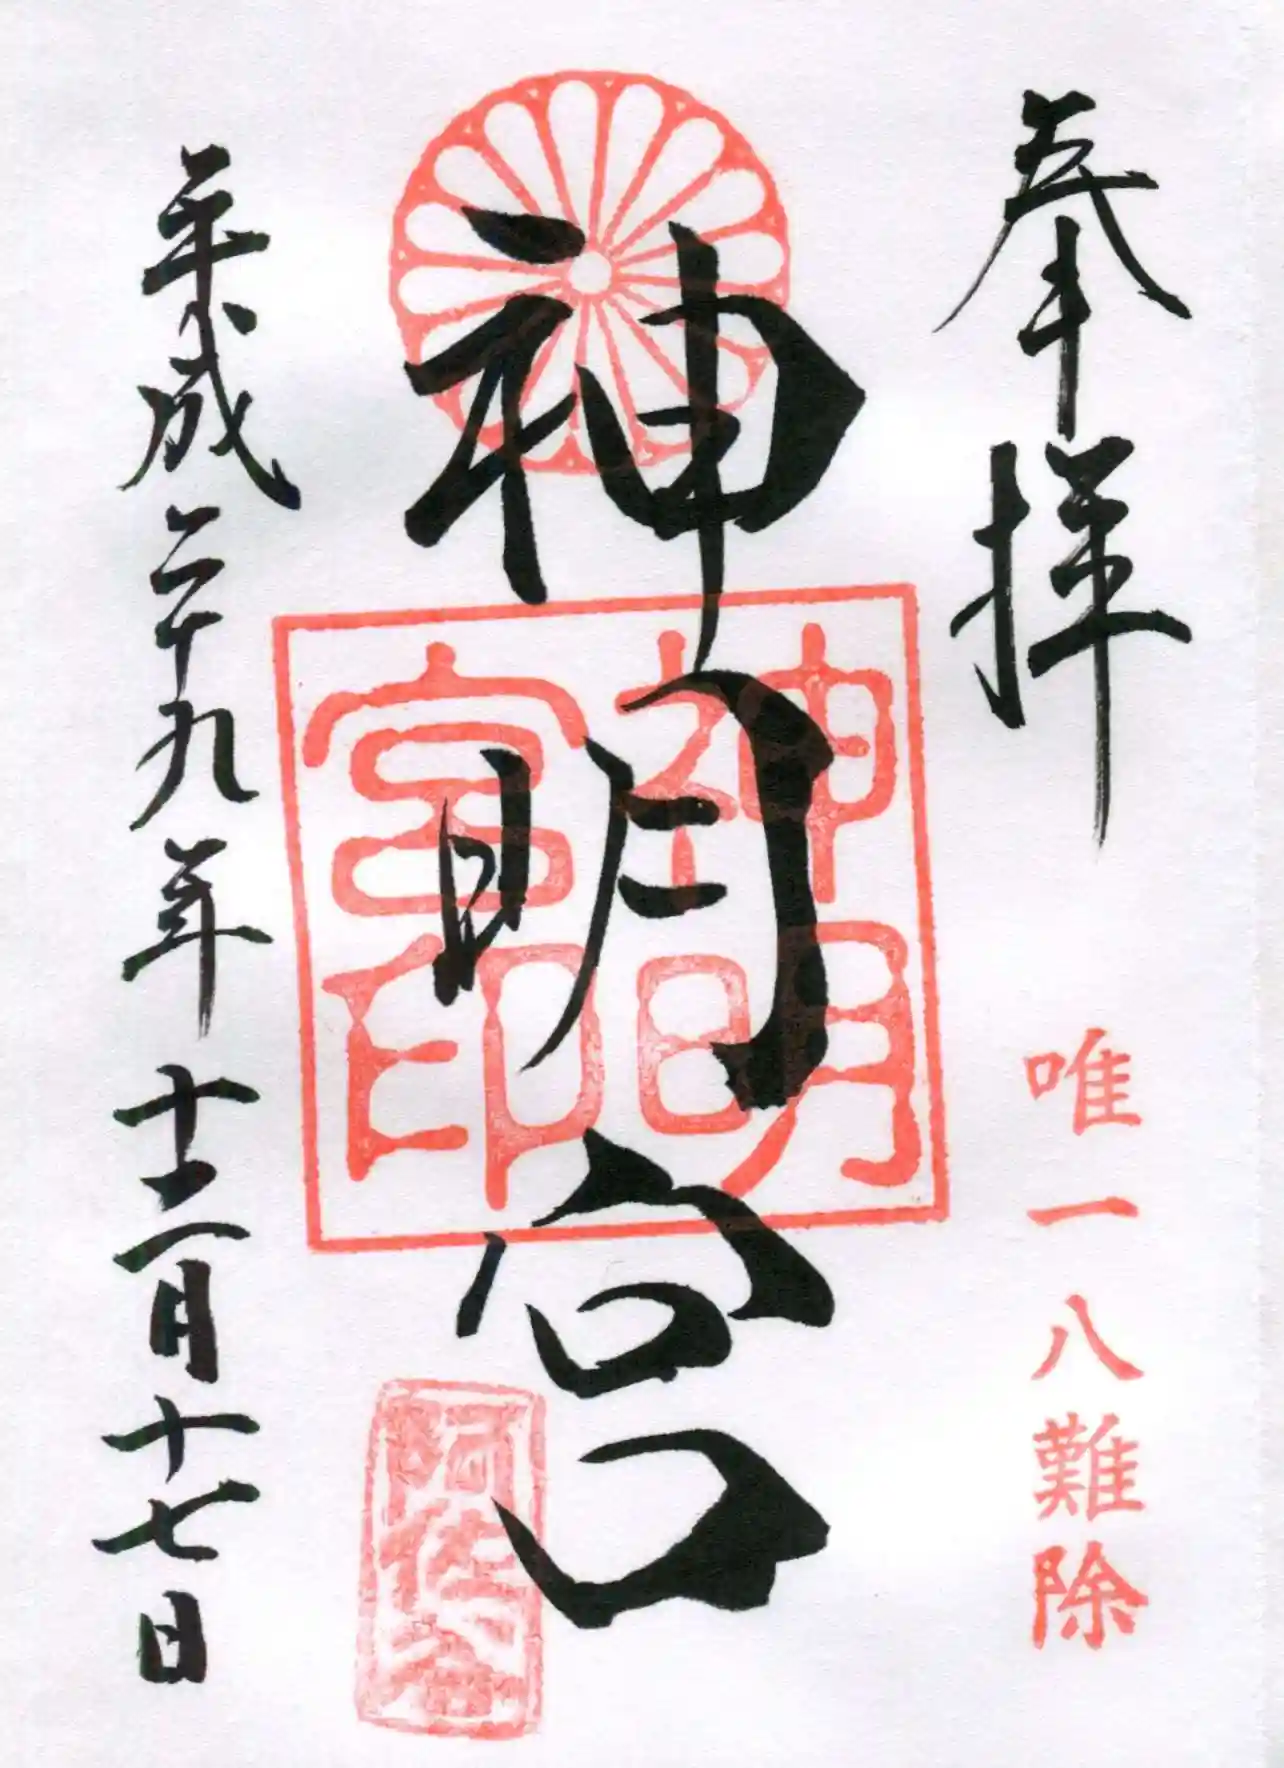 奉拝
唯一八難除
神明宮
神明
宮印
阿佐谷
平成二十九年十二月十七日